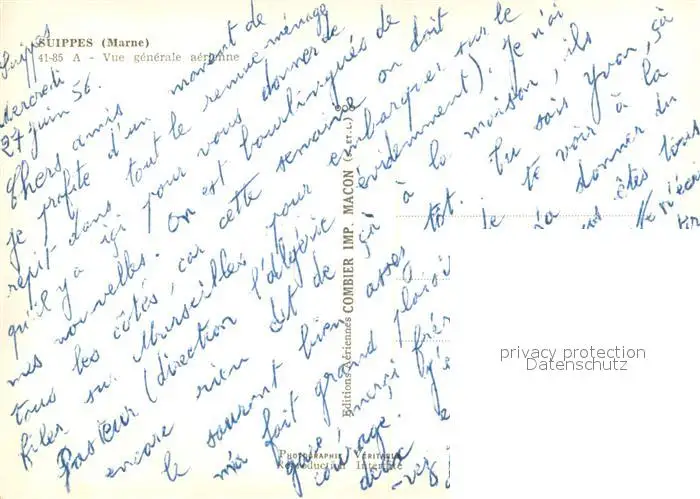 SUIPPES (Marne)
41-85 A - Vue générale aérienne
Suippes
Mercredi
27 juin 56.
Chers amis
je profite d'un moment de
répit dans tout le remue ménage
qu'il y a ici pour vous donner de
mes nouvelles. On est bourlingués de
tous les côtés, car cette semaine on doit
filer sur Marseille pour embarquer sur le
Pasteur (direction l'algérie évidemment). Je n'ai
encore rien dit de ça à la maison, ils
le sauront bien assez tôt. Tu sais Yvon, ça
m'a fait grand plaisi te voir à la
gare, merci donner du
courage. vous êtes tous
donc
-vez
Editions Aériennes COMBIER IMP. MACON (S.-et-L.)
PHOTOGRAPHIE VÉRITABLE
Reproduction Interdite
privacy protection
Datenschutz